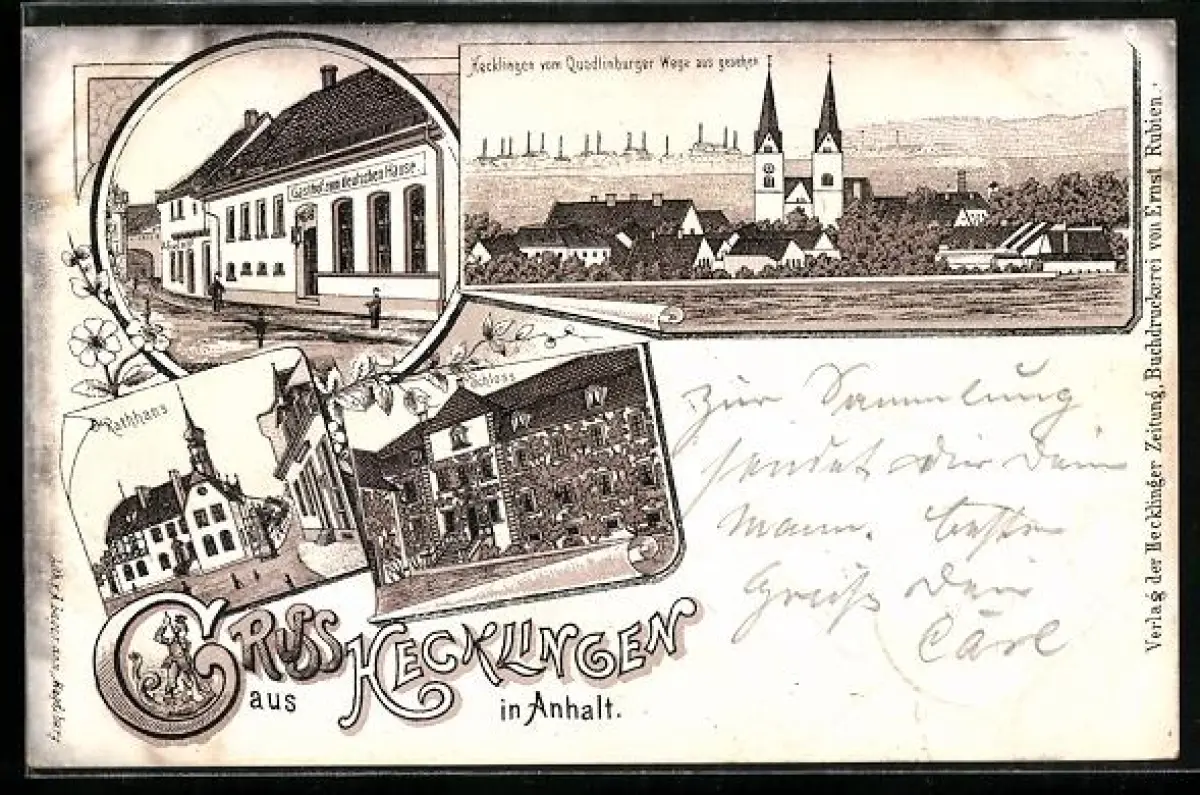 Gasthof zum deutschen Hause.
Hecklingen vom Quedlinburger Wege aus gesehen
Rathhaus
Schloss
Gruss
aus
Hecklingen
in Anhalt.
Zur Sammlung
sendet dir dein
Mann. beste
Grüße dein
Carl
Verlag der Hecklinger Zeitung, Buchdruckerei von Ernst Rubien.